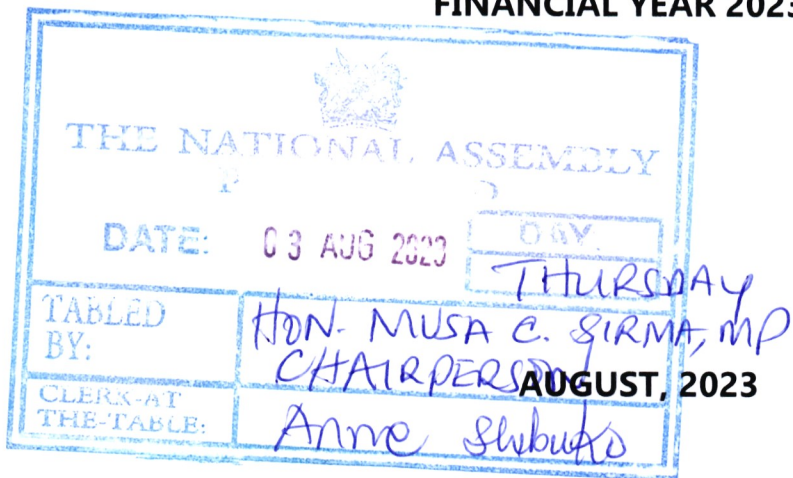 FINANCIAL YEAR 2023
THE NATIONAL ASSEMBLY
P D
DATE: 03 AUG 2023
DAY.
THURSDAY
TABLED BY:
HON. MUSA C. SIRMA, MP
CHAIRPERSON
AUGUST, 2023
CLERK-AT THE-TABLE:
Anne